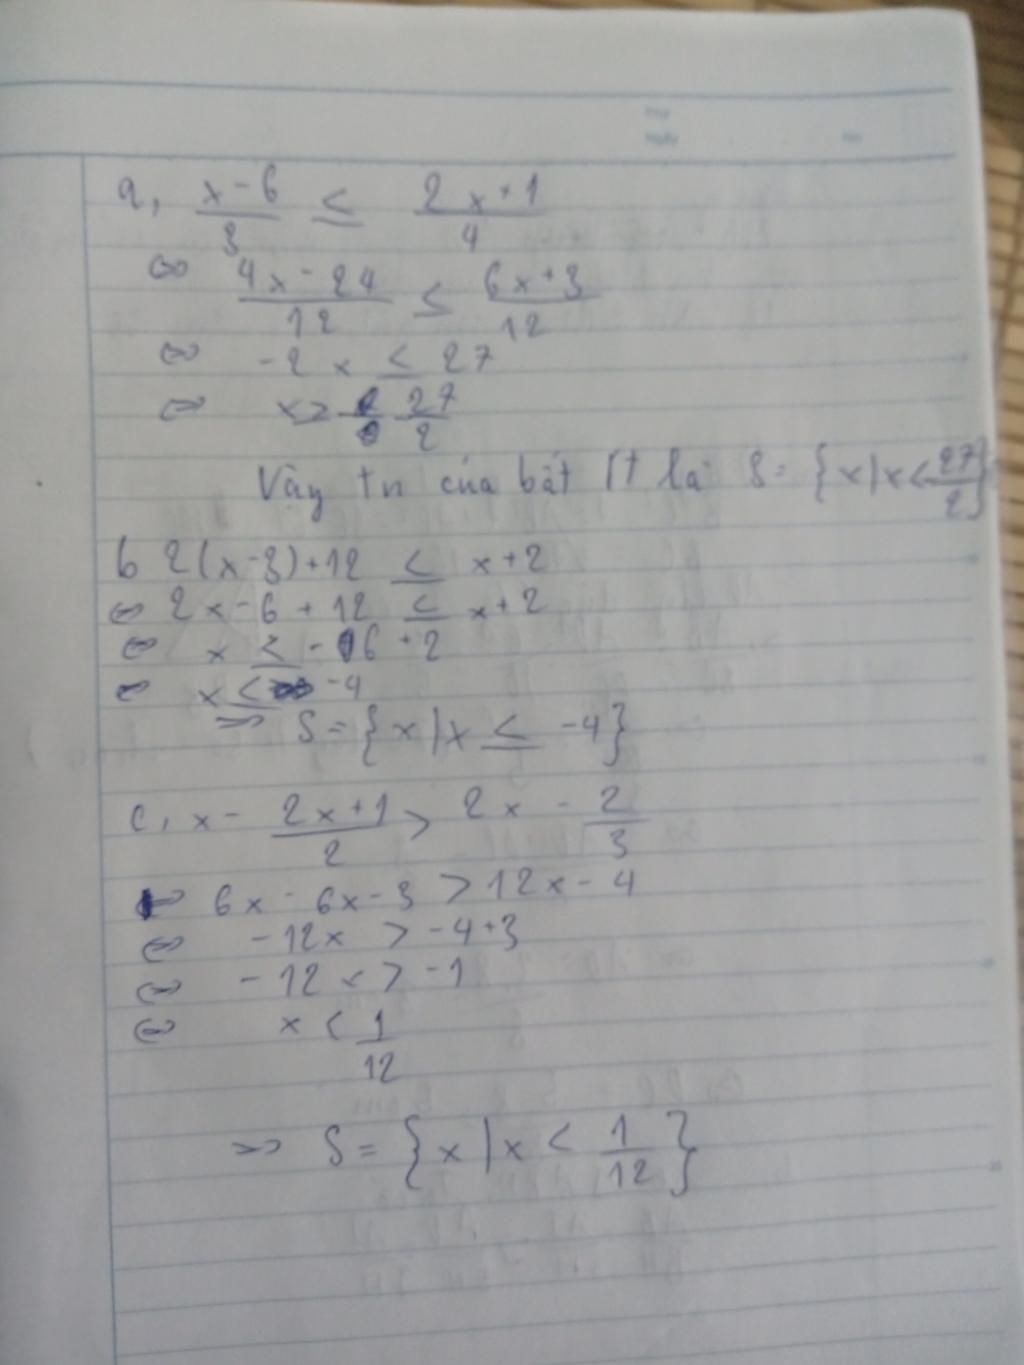 a, x-6/3 ≤ 2x+1/4
⇔ 4x-24/12 ≤ 6x+3/12
⇔ -2x ≤ 27
⇔ x ≥ - 27/2
Vậy tn của bất Pt là S = {x|x < 27/2}
b 2(x-3)+12 ≤ x+2
⇔ 2x-6+12 ≤ x+2
⇔ x ≤ -6+2
⇔ x ≤ -4
⇒ S = {x|x ≤ -4}
c, x - 2x+1/2 > 2x - 2/3
⇔ 6x-6x-3 > 12x-4
⇔ -12x > -4+3
⇔ -12x > -1
⇔ x < 1/12
⇒ S = {x|x < 1/12}